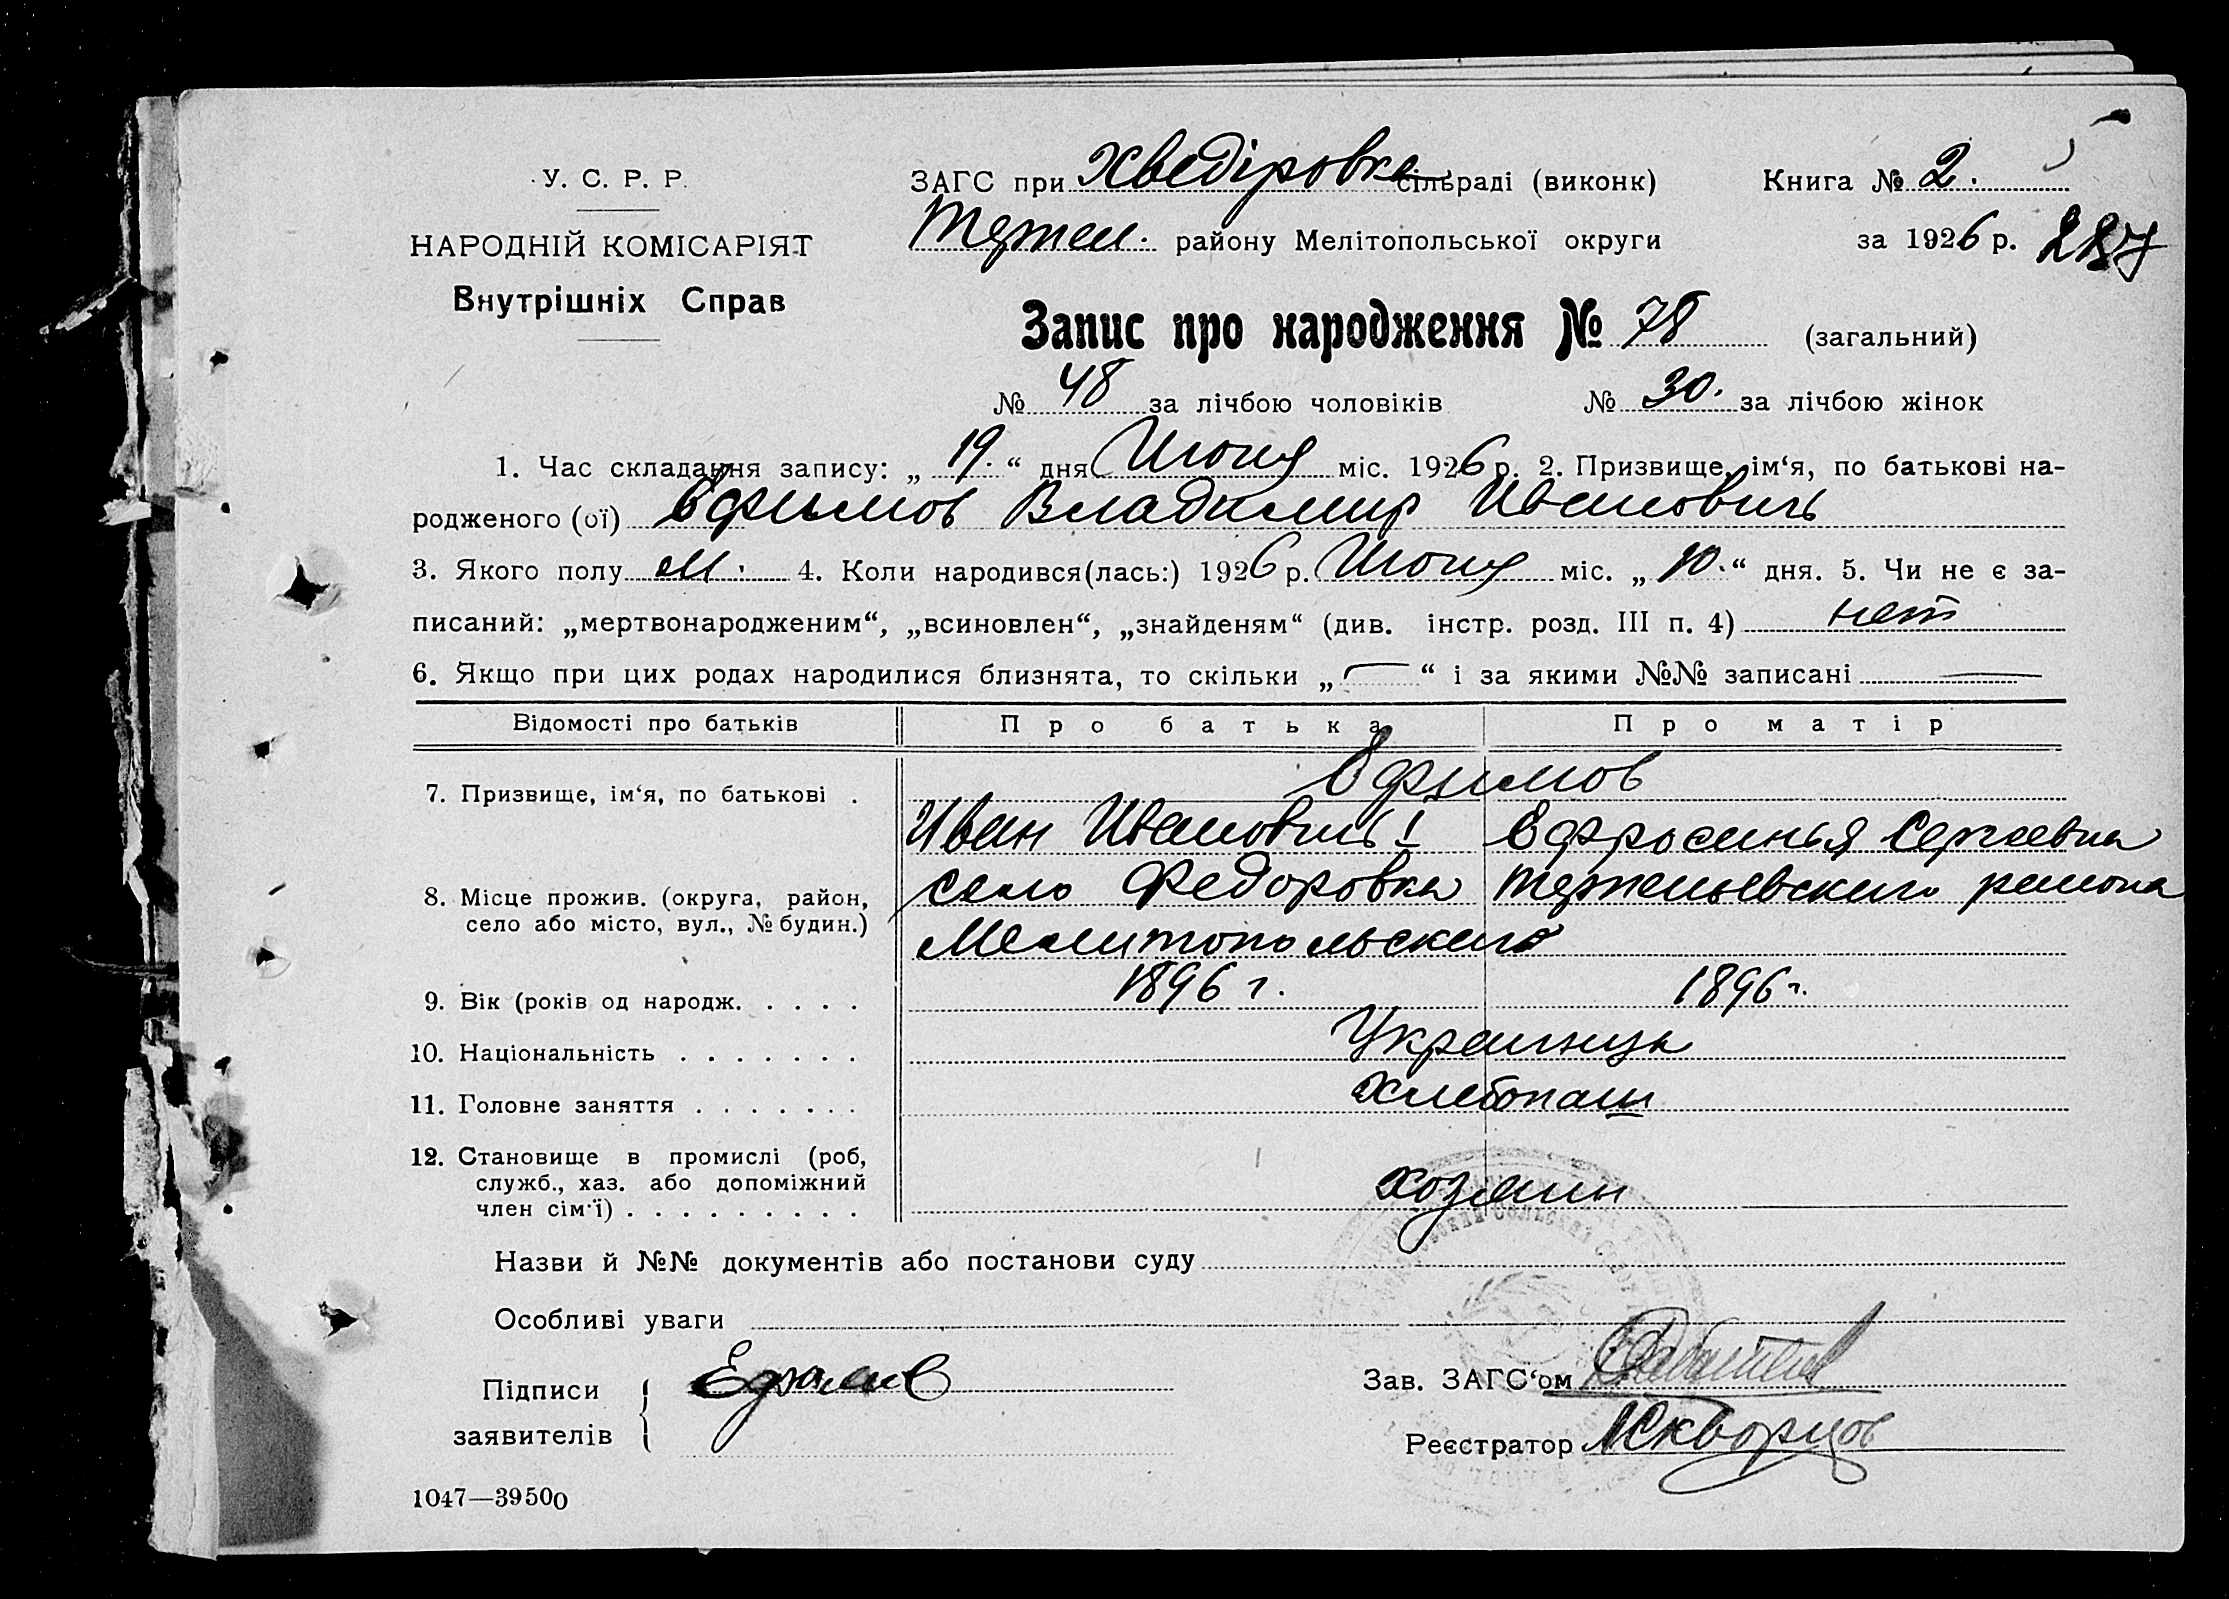 У. С. Р. Р.
НАРОДНІЙ КОМІСАРІЯТ
Внутрішніх Справ
ЗАГС при Хведіровка сільраді (виконк) Книга № 2.
району Мелітопольської округи за 1926 р. 287
Запис про народження № 78 (загальний)
№ 48 за лічбою чоловіків № 30. за лічбою жінок
1. Час складання запису: „ 19. “ дня Июня міс. 1926 р. 2. Призвище, ім‘я, по батькові на-
родженого (ої) Ефимов Владимир Иванович
3. Якого полу м. 4. Коли народився(лась:) 1926 р. Июня міс. „ 10. “ дня. 5. Чи не є за-
писаний: „мертвонародженим“, „всиновлен“, „знайденям“ (див. інстр. розд. III п. 4) нет
6. Якщо при цих родах народилися близнята, то скільки „ — “ і за якими №№ записані —
Відомості про батьків Про батька Про матір
Ефимов
7. Призвище, ім‘я, по батькові .
Иван Иванович Ефросинья Сергеевна
8. Місце прожив. (округа, район, село Федоровка района
село або місто, вул., № будин.) Мелитопольского
9. Вік (років од народж. . . . . 1896 г. 1896 г.
10. Національність . . . . . . . Украинцы
11. Головне заняття . . . . . . . Хлебопаш
12. Становище в промислі (роб,
служб., хаз. або допоміжний хозяин
член сім‘ї) . . . . . . . . .
Назви й №№ документів або постанови суду
Особливі уваги
Підписи Ефимов Зав. ЗАГС‘ом
заявителів Реєстратор Скворцов
1047—39500